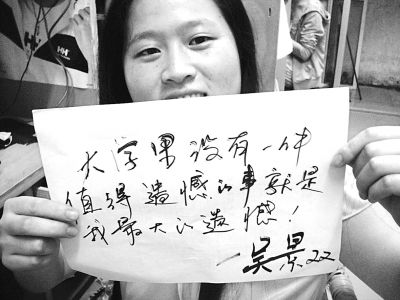 HH
大学里没有一件
值得遺憾的事就是
我最大的遺憾！
—吴景双